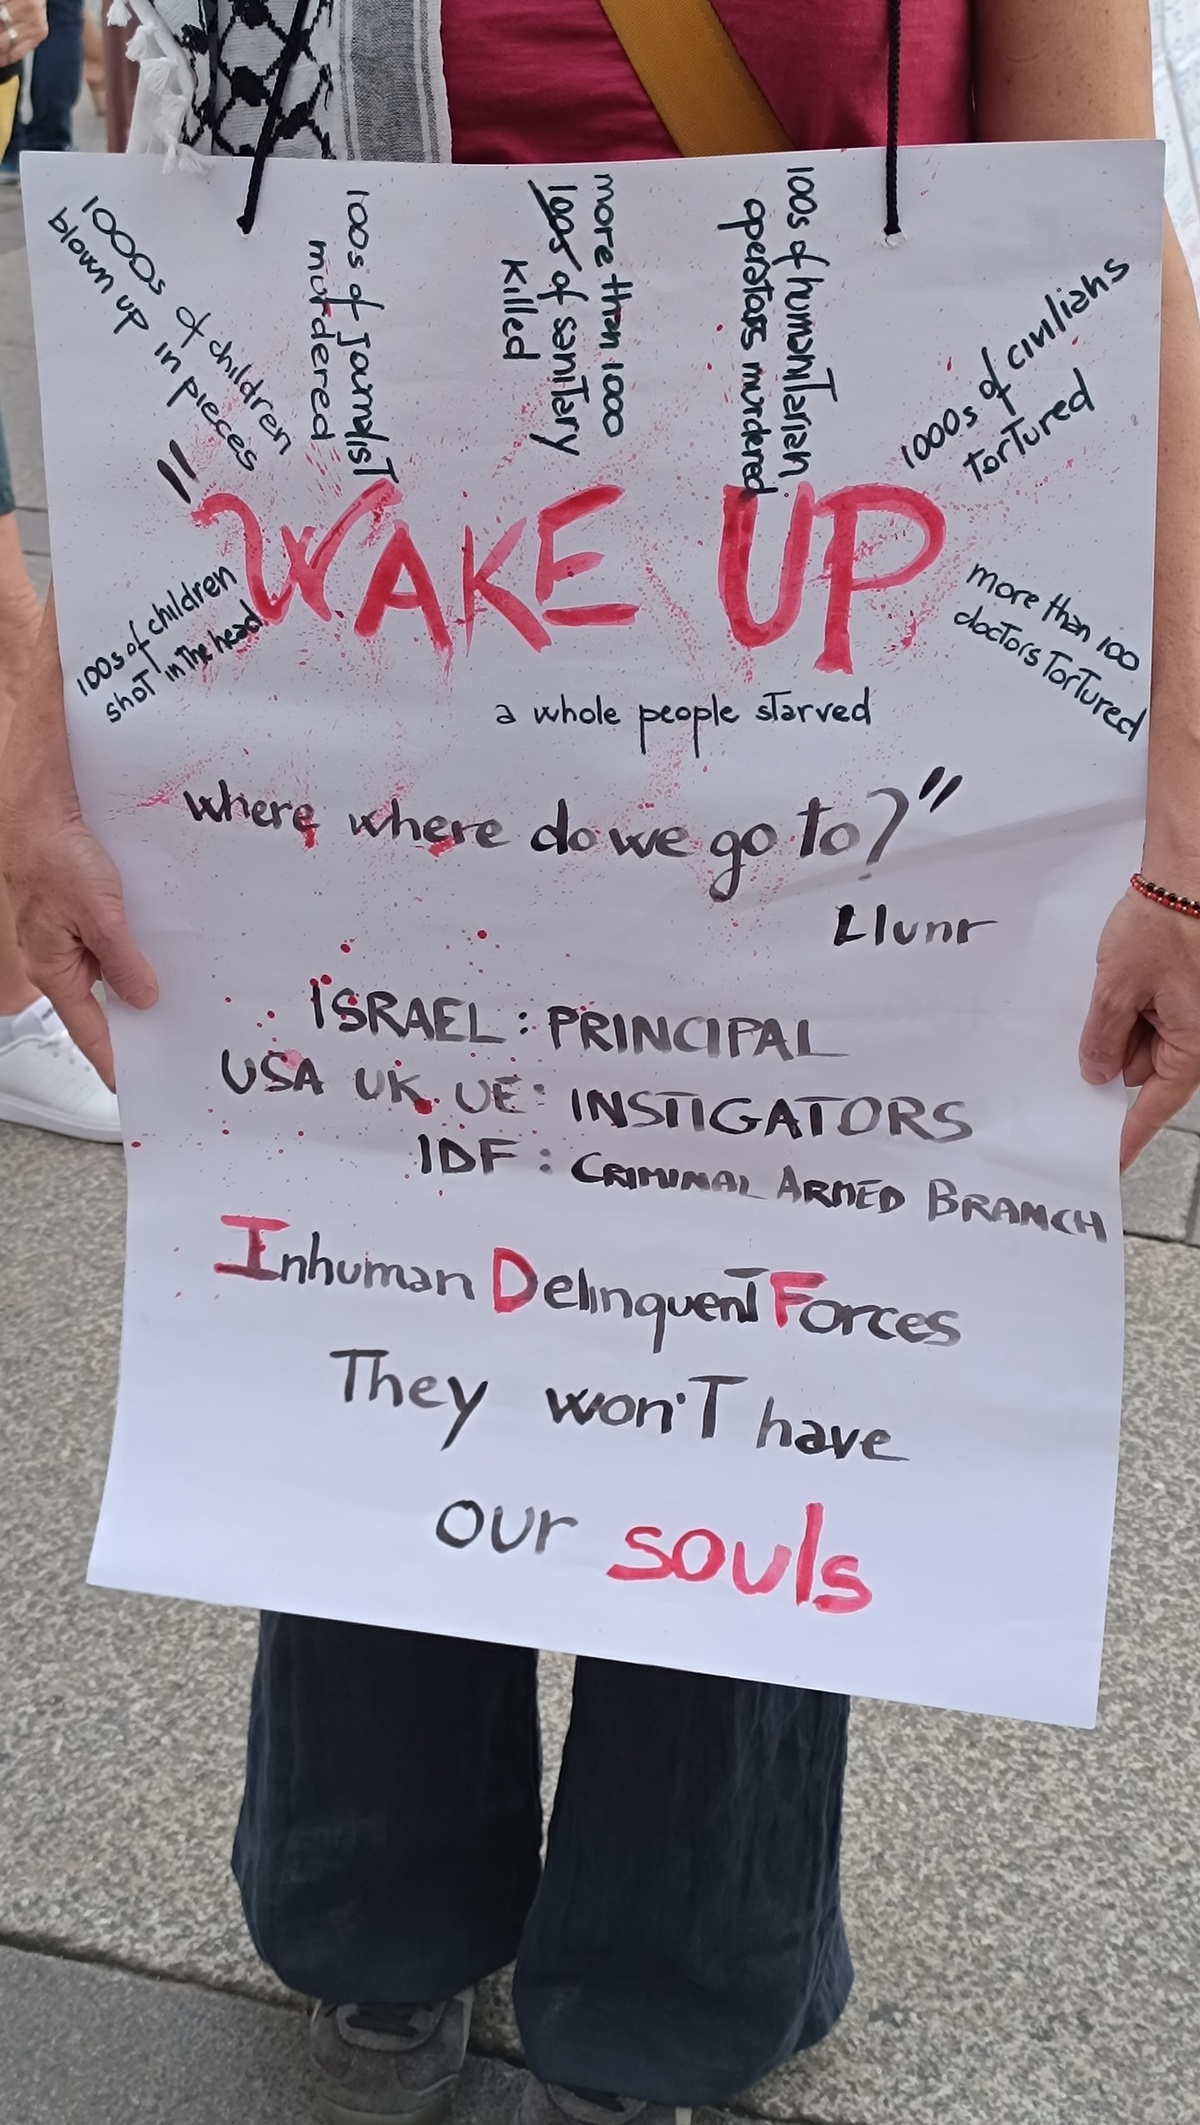 1000s of children
blown up in pieces
100s of JornalisT
murdered
more than 1000
100s of saniTary
Killed
100s of humaniTarian
operators murdered
1000s of civilians
TorTured
"WAKE UP
100s of children
shoT in The head
more than 100
docTors TorTured
a whole people sTarved
where where do we go to?"
Llunr
ISRAEL: PRINCIPAL
USA UK UE: INSTIGATORS
IDF: CRIMINAL ARMED BRANCH
Inhuman DelinquenT Forces
They won'T have
our souls